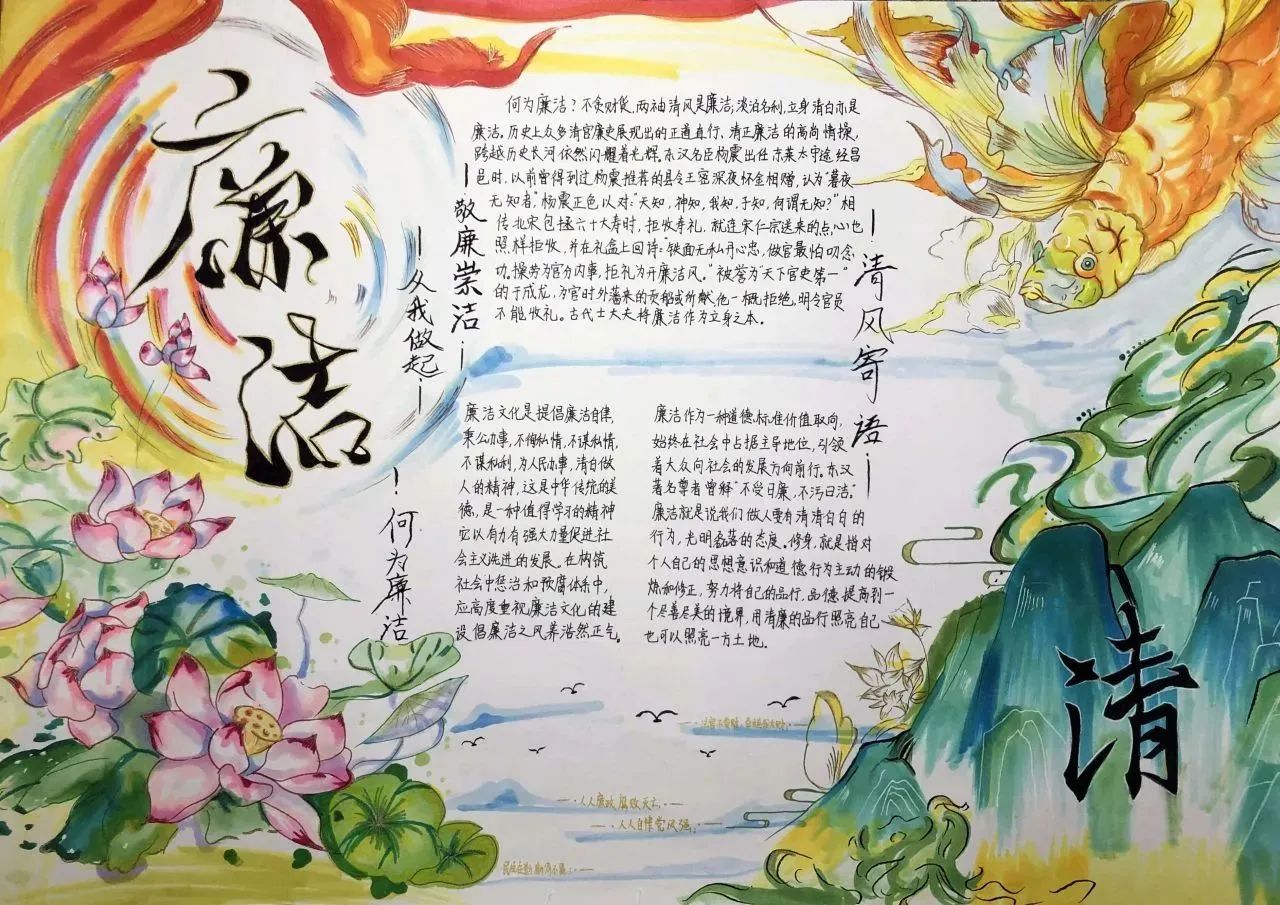 廉
洁
敬廉崇洁
从我做起
何为廉洁?不贪财货,两袖清风是廉洁,淡泊名利,立身清白亦是
廉洁。历史上众多清官廉吏展现出的正道直行、清正廉洁的高尚情操,
跨越历史长河依然闪耀着光辉。东汉名臣杨震出任东莱太守途经昌
邑时,以前曾得到过杨震推荐的县令王密深夜怀金相赠,认为"暮夜
无知者",杨震正色以对:"天知,神知,我知,子知,何谓无知?"相
传北宋包拯六十大寿时,拒收寿礼,就连宋仁宗送来的点心也
照样拒收,并在礼盒上回诗:"铁面无私丹心忠,做官最怕叨念
功。操劳为官分内事,拒礼为开廉洁风。"被誉为"天下官吏第一"
的于成龙,为官时外藩来的贡船或所献,他一概拒绝,明令官员
不能收礼。古代士大夫将廉洁作为立身之本。
清风寄语
何为廉洁
廉洁文化是提倡廉洁自律,
秉公办事,不徇私情,不谋私情,
不谋私利,为人民办事,清白做
人的精神,这是中华传统的美
德,是一种值得学习的精神
它以有力有强大力量促进社
会主义先进的发展。在构筑
社会中惩治和预腐体系中,
应高度重视廉洁文化的建
设倡廉洁之风养浩然正气。
廉洁作为一种道德标准价值取向,
始终在社会中占据主导地位,引领
着大众向社会的发展方向前行。东汉
著名尊者曾释"不受曰廉,不污曰洁。"
廉洁就是说我们做人要有清清白白的
行为,光明磊落的态度。修身,就是指对
个人自己的思想意识和道德行为主动的锻
炼和修正,努力将自己的品行、品德提高到一
个尽善尽美的境界,用清廉的品行照亮自己
也可以照亮一方土地。
清
人人廉政腐败灭亡
人人自律党风强